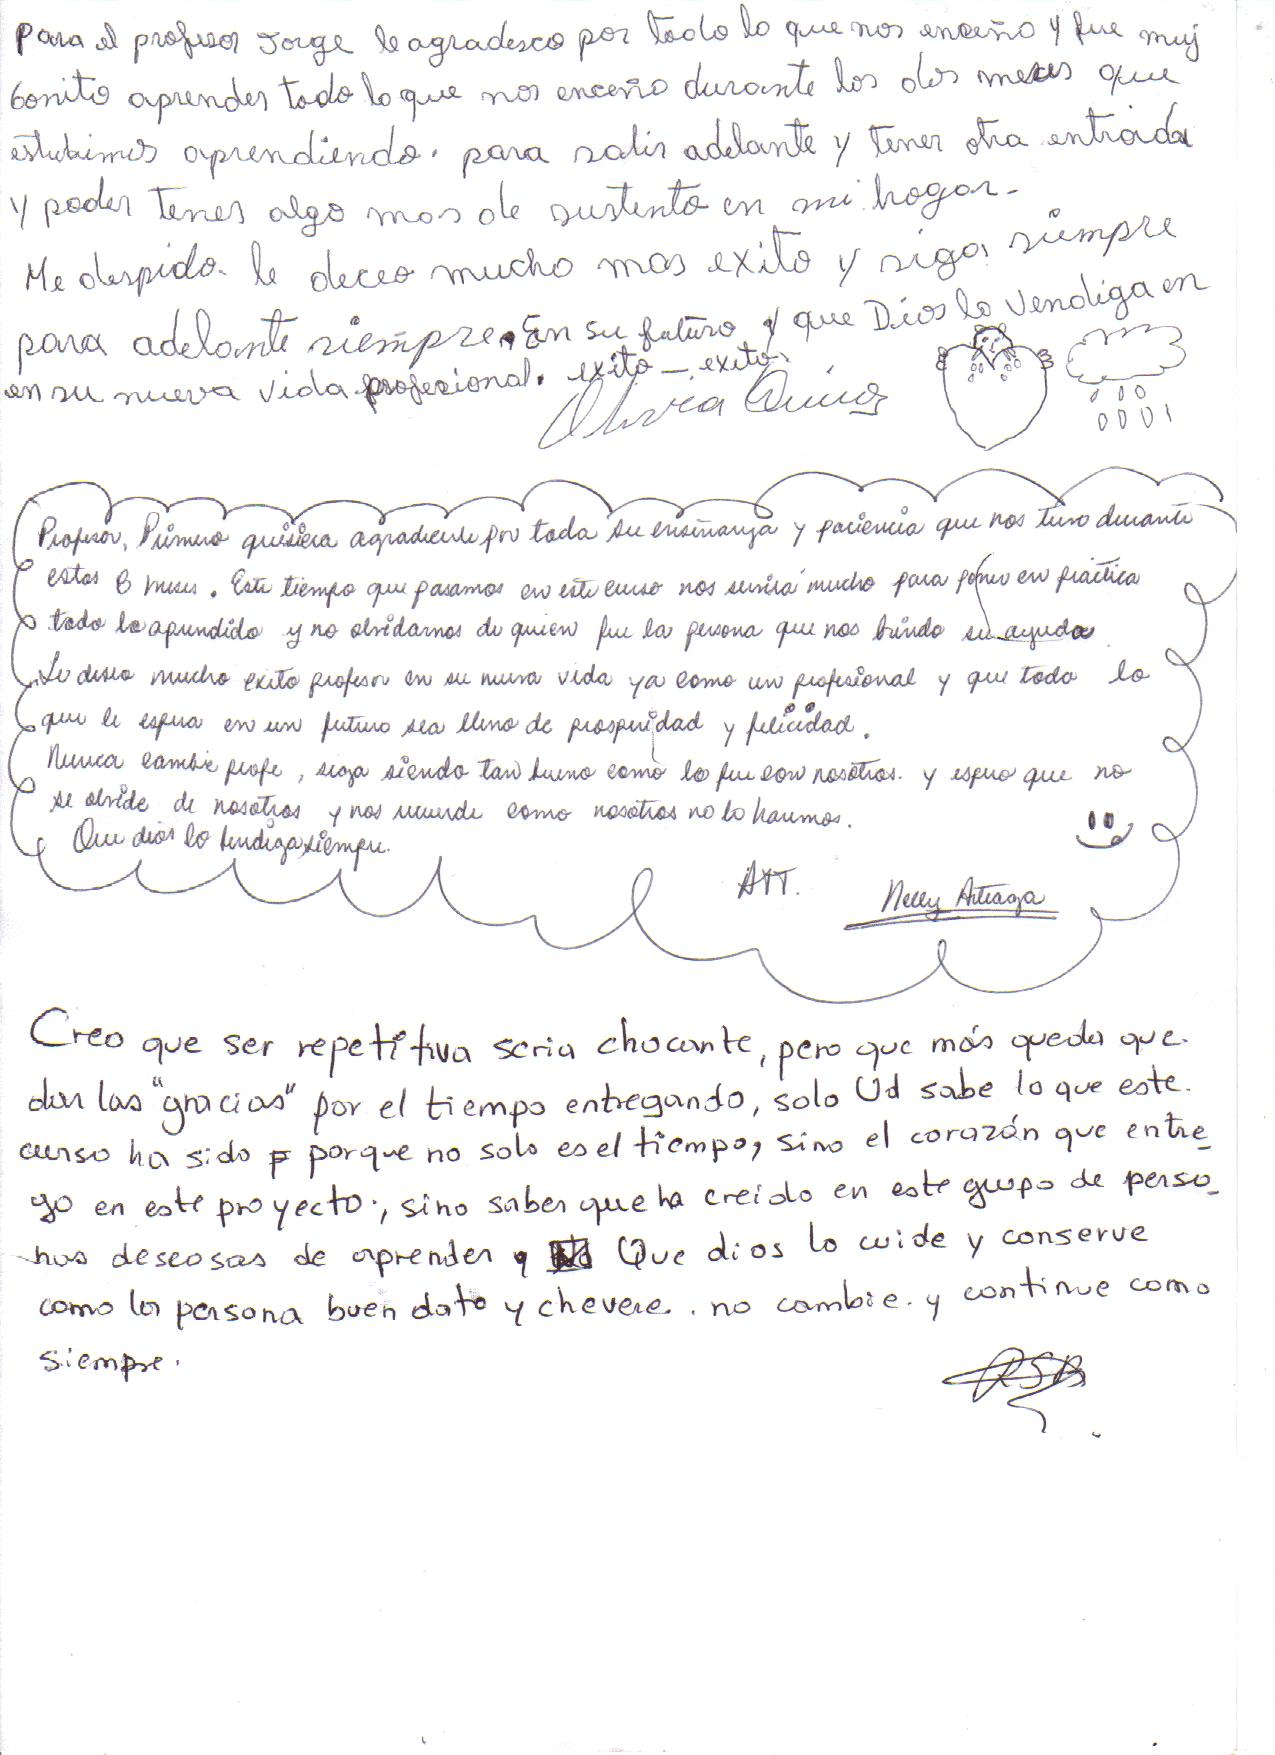 Para el profesor Jorge le agradesco por todo lo que nos enceño y fue muy
bonito aprender todo lo que nos enceño durante los dos meses que
estubimos aprendiendo. para salir adelante y tener otra entrada
y poder tener algo mas de sustento en mi hogar-
Me despido. le deceo mucho mas exito y siga siempre
para adelante siempre. En su futuro y que Dios lo Vendiga en
en su nueva vida profecional. exito - exito.
Profesor, Primero quisiera agradecerle por toda su enseñanza y paciencia que nos tuvo durante
estos 6 meses. Este tiempo que pasamos en este curso nos servirá mucho para poner en práctica
todo lo aprendido y no olvidarnos de quien fue la persona que nos brindo su ayuda
Le deseo mucho exito profesor en su nueva vida ya como un profesional y que todo lo
que le espera en un futuro sea lleno de prosperidad y felicidad.
Nunca cambie profe, siga siendo tan bueno como lo fue con nosotros. y espero que no
se olvide de nosotros y nos recuerde como nosotros no lo haremos.
Que dios lo bendiga siempre.
ATT.
Nelly Arteaga
Creo que ser repetitiva seria chocante, pero que más queda que.
dar las "gracias" por el tiempo entregando, solo Ud sabe lo que este.
curso ha sido porque no solo es el tiempo, sino el corazón que entre_
go en este proyecto., sino saber que ha creido en este grupo de perso_
nas deseosas de aprender, Que dios lo cuide y conserve
como la persona buen dato y chevere. no cambie. y continue como
siempre.